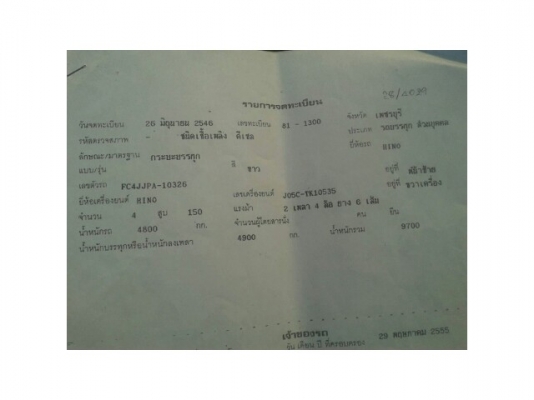 28/4029
รายการจดทะเบียน
วันจดทะเบียน 26 มิถุนายน 2546 เลขทะเบียน 81 - 1300 จังหวัด เพชรบุรี
รหัสตรวจสภาพ - ชนิดเชื้อเพลิง ดีเซล ประเภท รถบรรทุก ส่วนบุคคล
ลักษณะ/มาตรฐาน กระบะบรรทุก ยี่ห้อรถ HINO
แบบ/รุ่น สี ขาว
เลขตัวรถ FC4JJPA-10326 อยู่ที่
ยี่ห้อเครื่องยนต์ HINO เลขเครื่องยนต์ J05C-TK10535 อยู่ที่ ขวาเครื่อง
จำนวน 4 สูบ 150 แรงม้า 2 เพลา 4 ล้อ ยาง 6 เส้น
น้ำหนักรถ 4800 กก. จำนวนผู้โดยสารนั่ง คน ยืน
น้ำหนักบรรทุกหรือน้ำหนักลงเพลา 4900 กก. น้ำหนักรวม 9700
เจ้าของรถ
วัน เดือน ปี ที่ครอบครอง 29 พฤษภาคม 2555